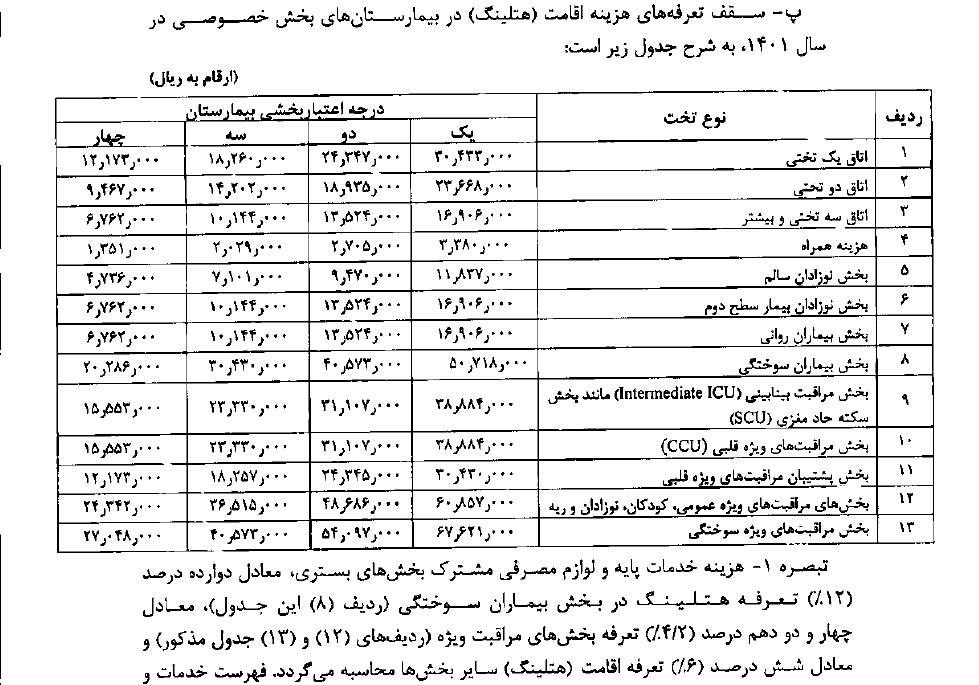 پ- سقف تعرفه‌های هزینه اقامت (هتلینگ) در بیمارستان‌های بخش خصوصی در
سال ۱۴۰۱، به شرح جدول زیر است:
(ارقام به ریال)
ردیف نوع تخت درجه اعتباربخشی بیمارستان
یک دو سه چهار
۱ اتاق یک تختی ۳۰٫۴۳۳٫۰۰۰ ۲۴٫۳۴۷٫۰۰۰ ۱۸٫۲۶۰٫۰۰۰ ۱۲٫۱۷۳٫۰۰۰
۲ اتاق دو تختی ۲۳٫۶۶۸٫۰۰۰ ۱۸٫۹۳۵٫۰۰۰ ۱۴٫۲۰۲٫۰۰۰ ۹٫۴۶۷٫۰۰۰
۳ اتاق سه تختی و بیشتر ۱۶٫۹۰۶٫۰۰۰ ۱۳٫۵۲۴٫۰۰۰ ۱۰٫۱۴۴٫۰۰۰ ۶٫۷۶۲٫۰۰۰
۴ هزینه همراه ۳٫۳۸۰٫۰۰۰ ۲٫۷۰۵٫۰۰۰ ۲٫۰۲۹٫۰۰۰ ۱٫۳۵۱٫۰۰۰
۵ بخش نوزادان سالم ۱۱٫۸۳۷٫۰۰۰ ۹٫۴۷۰٫۰۰۰ ۷٫۱۰۱٫۰۰۰ ۴٫۷۳۶٫۰۰۰
۶ بخش نوزادان بیمار سطح دوم ۱۶٫۹۰۶٫۰۰۰ ۱۳٫۵۲۴٫۰۰۰ ۱۰٫۱۴۴٫۰۰۰ ۶٫۷۶۲٫۰۰۰
۷ بخش بیماران روانی ۱۶٫۹۰۶٫۰۰۰ ۱۳٫۵۲۴٫۰۰۰ ۱۰٫۱۴۴٫۰۰۰ ۶٫۷۶۲٫۰۰۰
۸ بخش بیماران سوختگی ۵۰٫۷۱۸٫۰۰۰ ۴۰٫۵۷۳٫۰۰۰ ۳۰٫۴۳۰٫۰۰۰ ۲۰٫۲۸۶٫۰۰۰
۹ بخش مراقبت بینابینی (Intermediate ICU) مانند بخش
سکته حاد مغزی (SCU) ۳۸٫۸۸۴٫۰۰۰ ۳۱٫۱۰۷٫۰۰۰ ۲۳٫۳۳۰٫۰۰۰ ۱۵٫۵۵۳٫۰۰۰
۱۰ بخش مراقبت‌های ویژه قلبی (CCU) ۳۸٫۸۸۴٫۰۰۰ ۳۱٫۱۰۷٫۰۰۰ ۲۳٫۳۳۰٫۰۰۰ ۱۵٫۵۵۳٫۰۰۰
۱۱ بخش پشتیبان مراقبت‌های ویژه قلبی ۳۰٫۴۳۰٫۰۰۰ ۲۴٫۳۴۵٫۰۰۰ ۱۸٫۲۵۷٫۰۰۰ ۱۲٫۱۷۳٫۰۰۰
۱۲ بخش‌های مراقبت‌های ویژه عمومی، کودکان، نوزادان و ریه ۶۰٫۸۵۷٫۰۰۰ ۴۸٫۶۸۶٫۰۰۰ ۳۶٫۵۱۵٫۰۰۰ ۲۴٫۳۴۲٫۰۰۰
۱۳ بخش مراقبت‌های ویژه سوختگی ۶۷٫۶۲۱٫۰۰۰ ۵۴٫۰۹۷٫۰۰۰ ۴۰٫۵۷۳٫۰۰۰ ۲۷٫۰۴۸٫۰۰۰
تبصره ۱- هزینه خدمات پایه و لوازم مصرفی مشترک بخش‌های بستری، معادل دوازده درصد
(۱۲٪) تعرفه هتلینگ در بخش بیماران سوختگی (ردیف (۸) این جدول)، معادل
چهار و دو دهم درصد (۴/۲٪) تعرفه بخش‌های مراقبت ویژه (ردیف‌های (۱۲) و (۱۳) جدول مذکور) و
معادل شش درصد (۶٪) تعرفه اقامت (هتلینگ) سایر بخش‌ها محاسبه می‌گردد. فهرست خدمات و